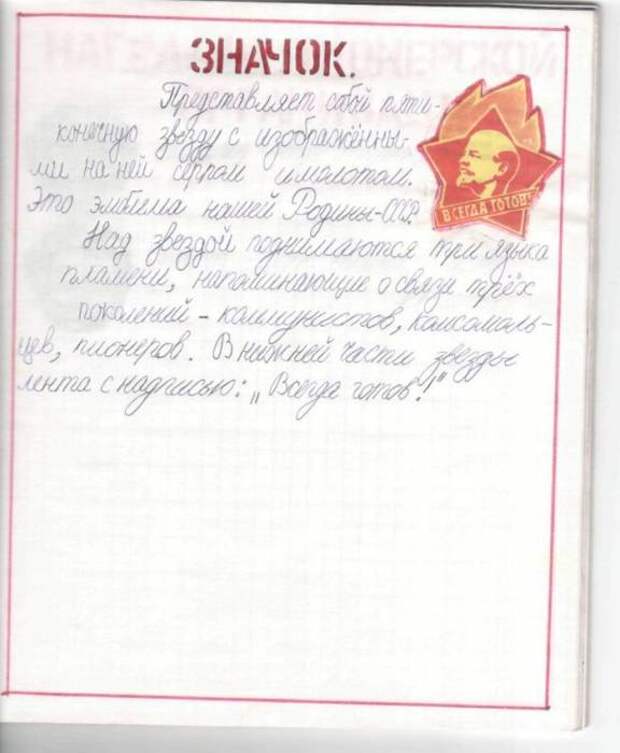 ЗНАЧОК.
Представляет собой пяти-
конечную звезду с изображённы-
ми на ней серпом и молотом.
Это эмблима нашей Родины-СССР.
ВСЕГДА ГОТОВ!
Над звездой поднимаются три языка
пламени, напоминающие о связи трёх
поколений - коммунистов, комсомоль-
цев, пионеров. В нижней части звезды
лента с надписью: „Всегда готов!"